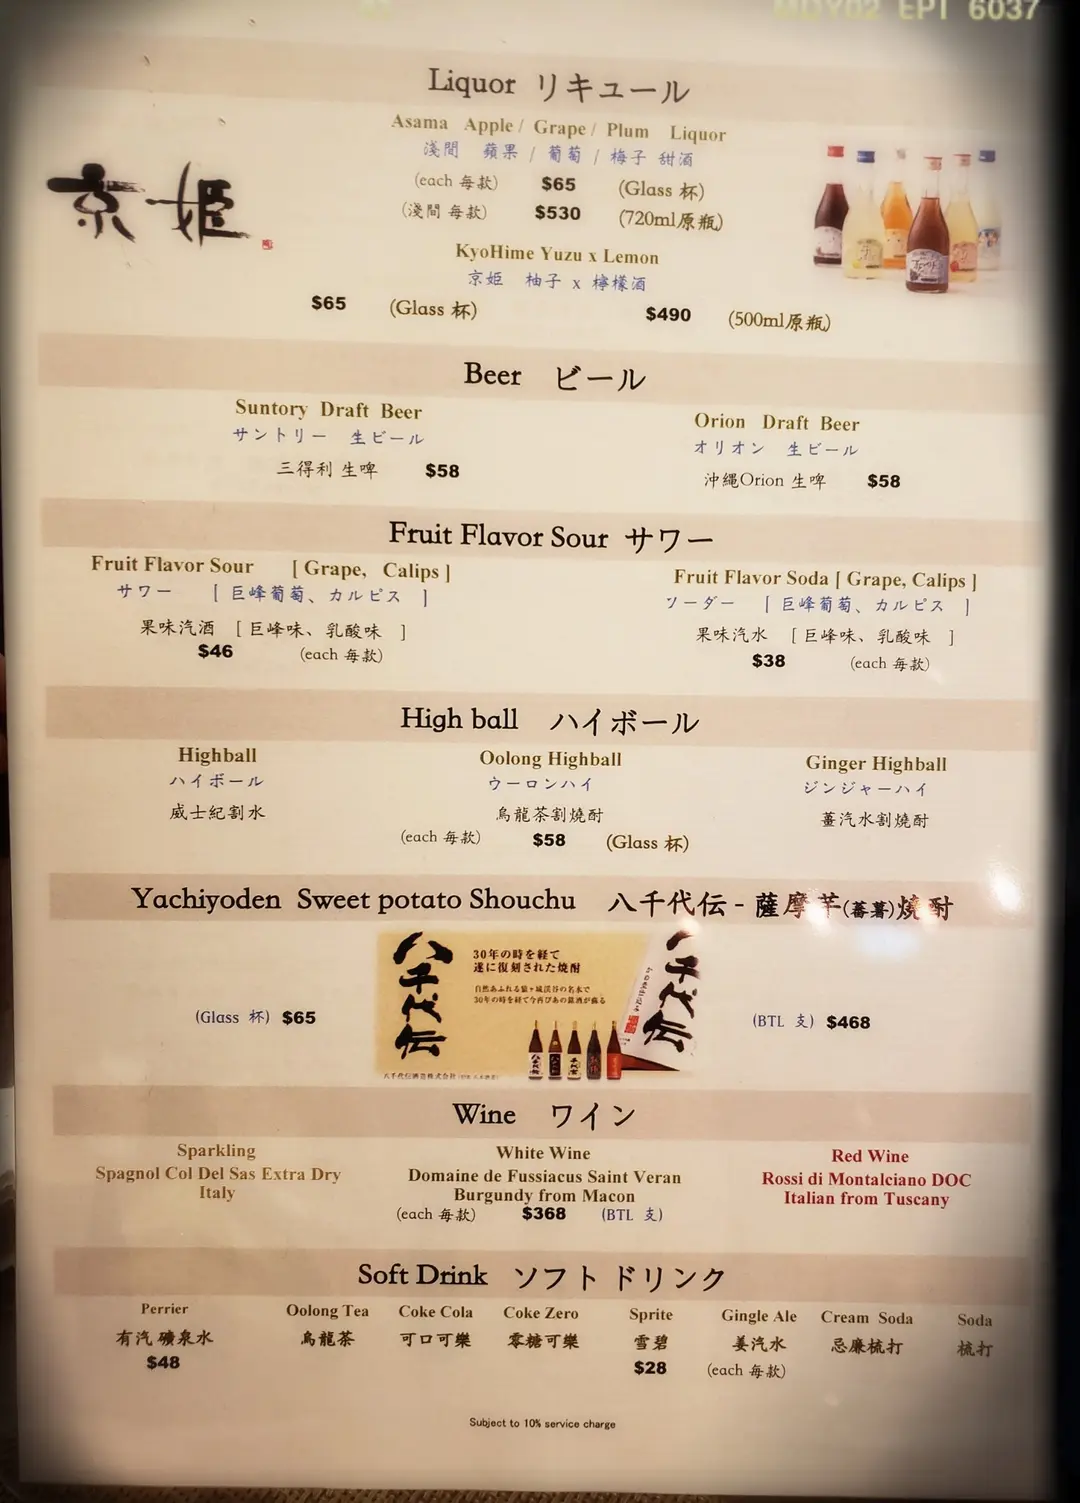 EPI 6037
Liquor リキュール
Asama Apple / Grape / Plum Liquor
淺間 蘋果 / 葡萄 / 梅子 甜酒
(each 每款) $65 (Glass 杯)
(淺間 每款) $530 (720ml原瓶)
京姫
KyoHime Yuzu x Lemon
京姫 柚子 x 檸檬酒
$65 (Glass 杯) $490 (500ml原瓶)
Beer ビール
Suntory Draft Beer Orion Draft Beer
サントリー 生ビール オリオン 生ビール
三得利 生啤 $58 沖繩Orion 生啤 $58
Fruit Flavor Sour サワー
Fruit Flavor Sour [ Grape, Calips ] Fruit Flavor Soda [ Grape, Calips ]
サワー [ 巨峰葡萄、カルピス ] ソーダー [ 巨峰葡萄、カルピス ]
果味汽酒 [ 巨峰味、乳酸味 ] 果味汽水 [ 巨峰味、乳酸味 ]
$46 (each 每款) $38 (each 每款)
High ball ハイボール
Highball Oolong Highball Ginger Highball
ハイボール ウーロンハイ ジンジャーハイ
威士紀割水 烏龍茶割燒酎 薑汽水割燒酎
(each 每款) $58 (Glass 杯)
Yachiyoden Sweet potato Shouchu 八千代伝 - 薩摩芋(蕃薯)燒酎
八千代伝
30年の時を経て
遂に復刻された焼酎
自然あふれる猿ヶ城渓谷の名水で
30年の時を経て今再びあの銘酒が蘇る
八千代伝
(Glass 杯) $65 (BTL 支) $468
八千代伝酒造株式会社
Wine ワイン
Sparkling White Wine Red Wine
Spagnol Col Del Sas Extra Dry Domaine de Fussiacus Saint Veran Rossi di Montalciano DOC
Italy Burgundy from Macon Italian from Tuscany
(each 每款) $368 (BTL 支)
Soft Drink ソフトドリンク
Perrier Oolong Tea Coke Cola Coke Zero Sprite Gingle Ale Cream Soda Soda
有汽礦泉水 烏龍茶 可口可樂 零糖可樂 雪碧 姜汽水 忌廉梳打 梳打
$48 $28 (each 每款)
Subject to 10% service charge